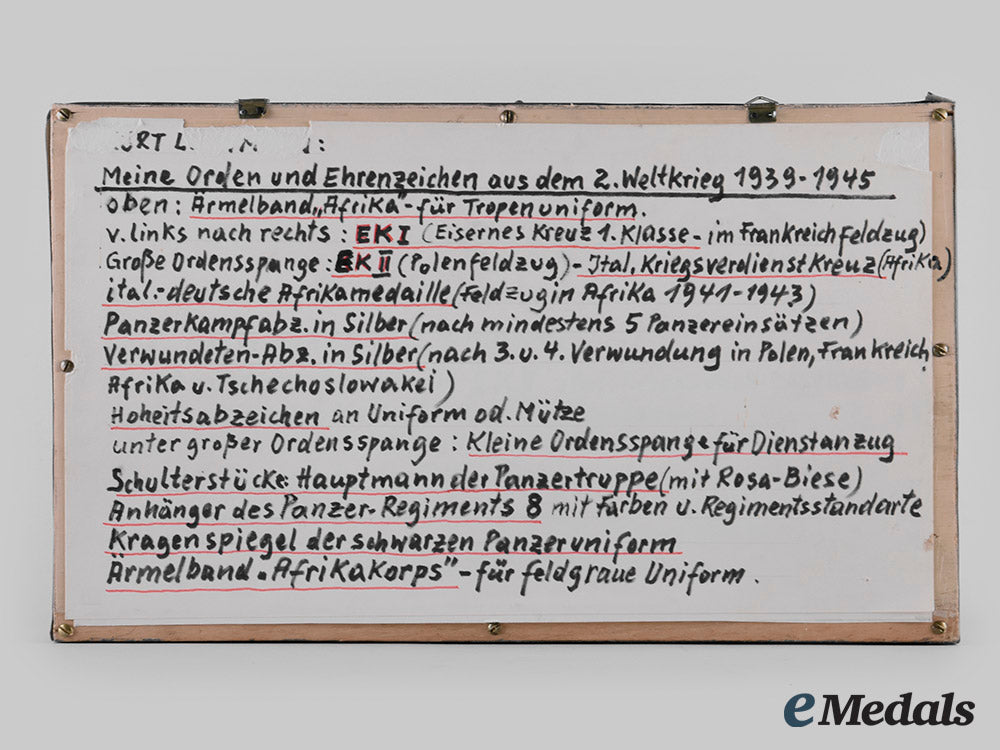 Meine Orden und Ehrenzeichen aus dem 2. Weltkrieg 1939-1945
oben: Ärmelband „Afrika" - für Tropenuniform.
v. links nach rechts: EK I (Eisernes Kreuz 1. Klasse - im Frankreichfeldzug)
Große Ordensspange: EK II (Polenfeldzug) - Ital. Kriegsverdienst Kreuz (Afrika)
ital.-deutsche Afrikamedaille (Feldzug in Afrika 1941-1943)
Panzerkampfabz. in Silber (nach mindestens 5 Panzereinsätzen)
Verwundeten-Abz. in Silber (nach 3. u. 4. Verwundung in Polen, Frankreich,
Afrika u. Tschechoslowakei)
Hoheitsabzeichen an Uniform od. Mütze
unter großer Ordensspange: Kleine Ordensspange für Dienstanzug
Schulterstücke: Hauptmann der Panzertruppe (mit Rosa-Biese)
Anhänger des Panzer-Regiments 8 mit Farben u. Regimentsstandarte
Kragenspiegel der schwarzen Panzeruniform
Ärmelband „Afrikakorps" - für feldgraue Uniform.
eMedals